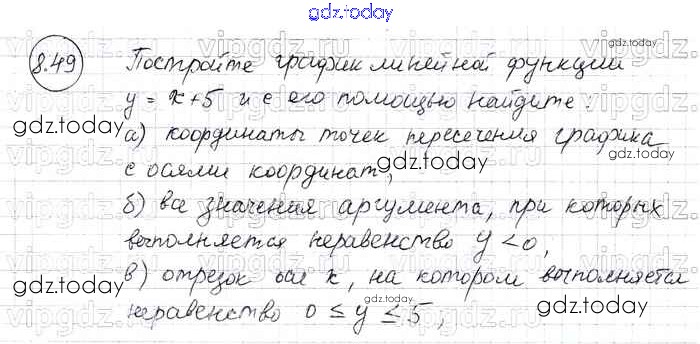 gdz.today
8.49 Постройте график линейной функции
y = x+5 и с его помощью найдите:
gdz.today
а) координаты точек пересечения графика
gdz.today
с осями координат,
gdz.today
б) все значения аргумента, при которых
выполняется неравенство y < 0,
в) отрезок оси x, на котором выполняется
gdz.today
неравенство 0 ≤ y ≤ 5,
gdz.today
gdz.today
vipgdz.com